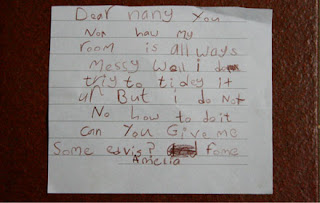 Dear nany you
Non haw my
room is all ways
messy Well i do
triy to tidey it
up But i do Not
No how to do it
can you Give me
Some edvis? fome
Amelia